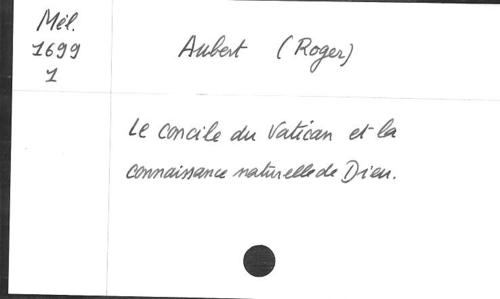 Mél.
1699
1
Aubert (Roger)
Le concile du Vatican et la
connaissance naturelle de Dieu.